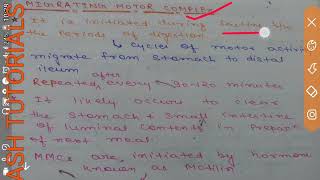 MIGRATING MOTOR COMPLEX
It is initiated during
the periods of digestion
↳ cycles of motor activity
migrate from stomach to distal
ileum
after
Repeated every 90-120 minutes
It likely occurs to clear
the stomach + small intestine
of luminal contents in
of next meal.
MMCs are initiated by hormone
known as Motilin
ASH TUTORIALS